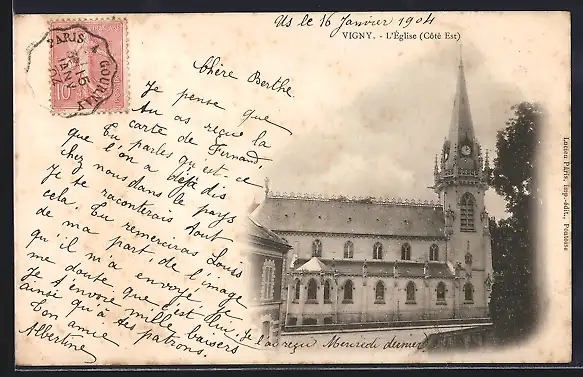 Us le 16 Janvier 1904
VIGNY. - L'Église (Côté Est)
PARIS A GOURNAY
15
JANV
10
Chère Berthe
Je pense que
tu as reçu la
carte de Fernand,
Tu parles qu'est ce
que l'on a déjà dis
chez nous dans le pays
Je te raconterais tout
cela. Tu remercieras Louis
de ma part de l'image
qu'il m'a envoyé. Je
me doute que c'est lui. Je l'ai reçu Mercredi dernier
Je t'envoie mille baisers
ainsi qu'à tes patrons.
Ton amie
Albertine
Lucien Pâris, imp.-édit., Pontoise